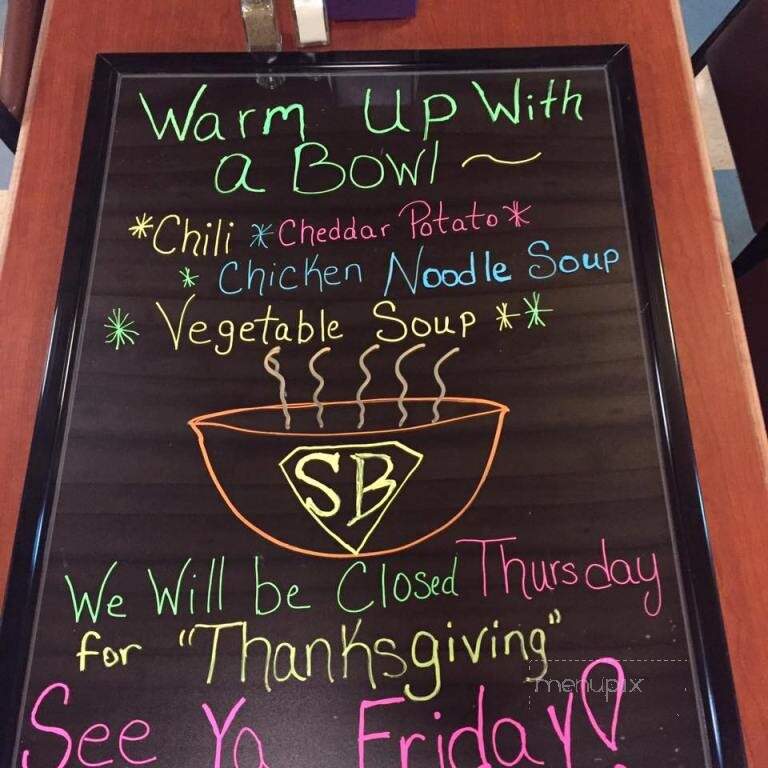 Warm Up With
a Bowl ~
*Chili *Cheddar Potato*
* Chicken Noodle Soup
* Vegetable Soup **
SB
We Will be Closed Thursday
for "Thanksgiving"
menupix
See Ya Friday!